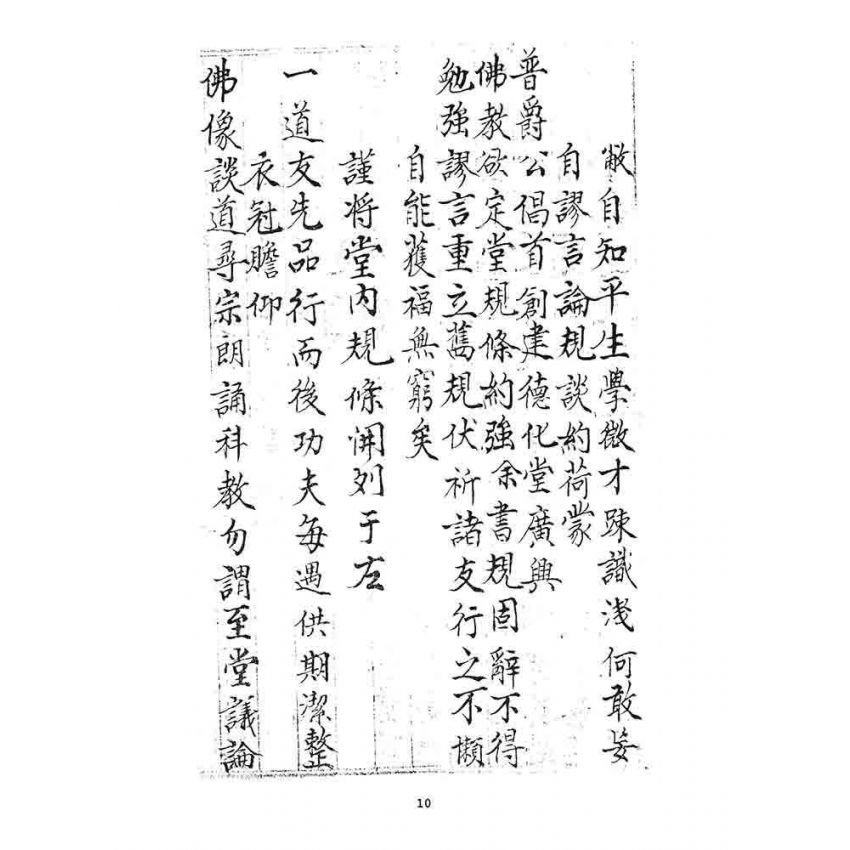 敝自知平生學微才踈識淺何敢妄
自謬言論規談約荷蒙
普爵公倡首創建德化堂廣興
佛教欲定堂規條約強余書規固辭不得
勉強謬言重立舊規伏祈諸友行之不懶
自能獲福無窮矣
謹将堂内規條開列于左
一道友先品行而後功夫每遇供期潔整
衣冠瞻仰
佛像談道尋宗朗誦科教勿謂至堂議論
10